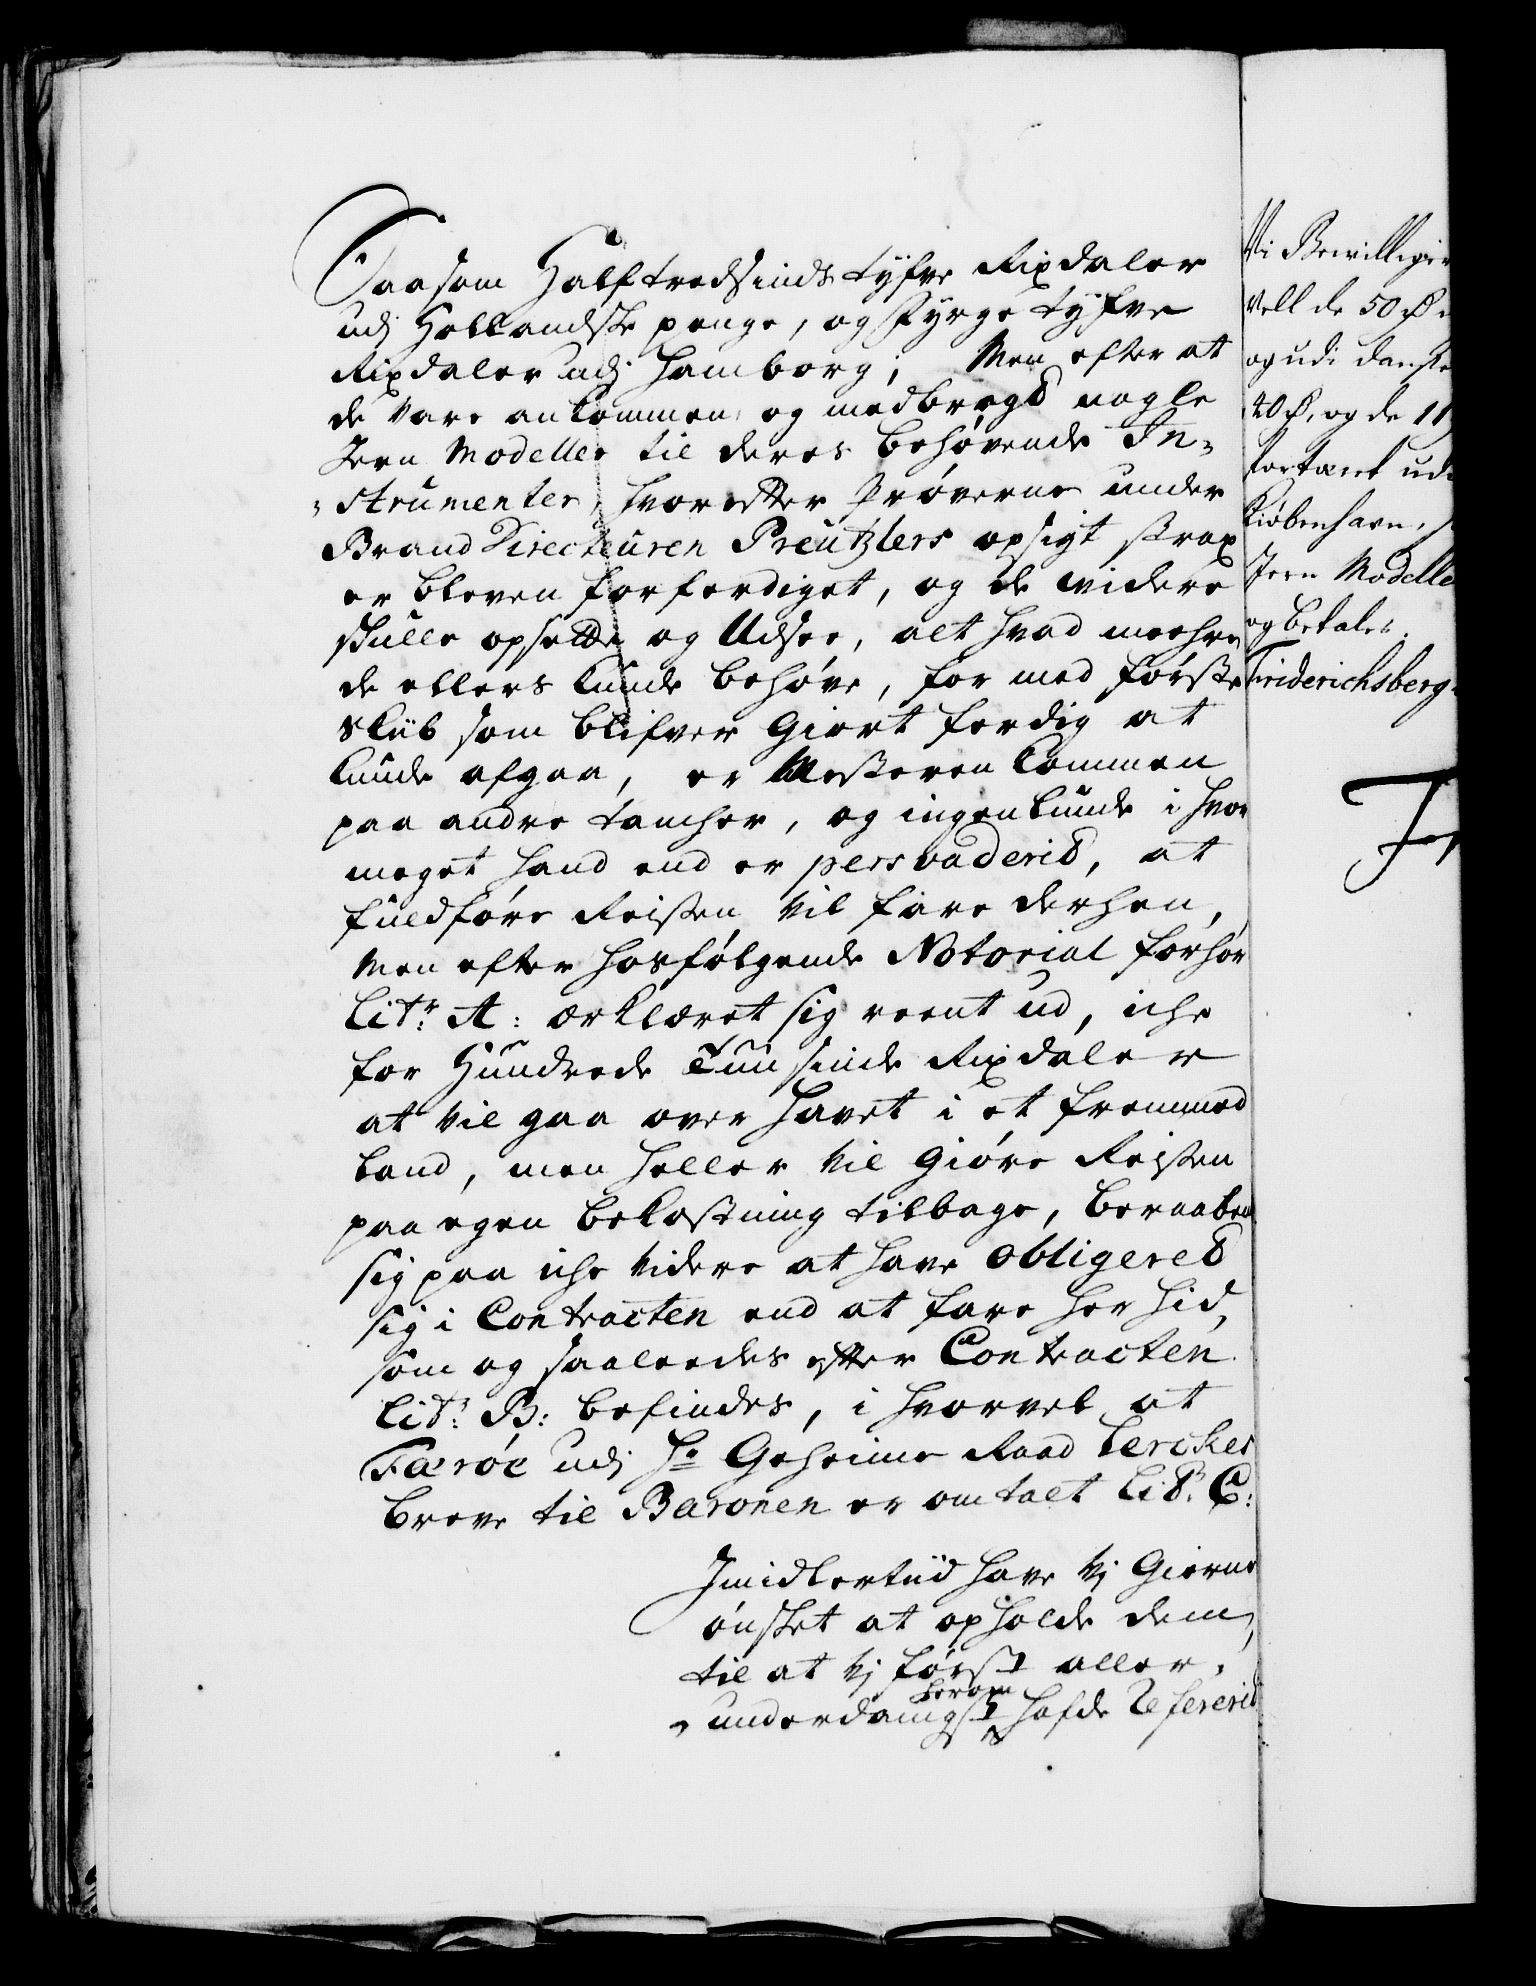 Saasom Halftredsinds tyfve Rixdaler
udj Hollandske penge, og Fyrge tyfve
Rixdaler udj Hamborg; Men efter at
de vare ankommen, og medbragt nogle
Jern Modeller til deres behøvende In-
-strumenter, hvorefter Prøverne under
Brand Directeuren Preutzlers opsigt strax
er bleven forferdiget, og de widere
skulle opsette og Udsee, alt hvad meehre
de ellers kunde behøve, for med første
Skiib som blifver giort ferdig at
kunde afgaa, er Mesteren kommen
paa andre tancher, og ingenlunde i hvor
meget hand end er persvaderit, at
fuldføre Reissen vil fare derhen,
Men efter hosfølgende Notorial forhør
Litr: A: erklæret sig reent ud, iche
for Hundrede Tuusinde Rixdaler
at vil gaa over Havet i et fremmed
Land, men heller vil giøre Reissen
paa egen bekostning tilbage, beraaben
sig paa iche videre at have obligeret
sig i Contracten end at fare her hid,
som og saaleedes efter Contracten
Litr: B: befindes, i hvorvel at
Færøe udj Hr: Geheime Raad Lerckes
breve til Baronen er omtalt Litr: C:
Imidlertiid have vj gierne
ønsket at opholde dem,
til at vj først aller-
-underdanigst herom hafde Refererit
Vi Bevillige
vell de 50 Rd
og udi danske
40 Rd, og de 11
fortæret ud
Kiøbenhavn,
Jern Modelle
og betales.
Friderichsberg